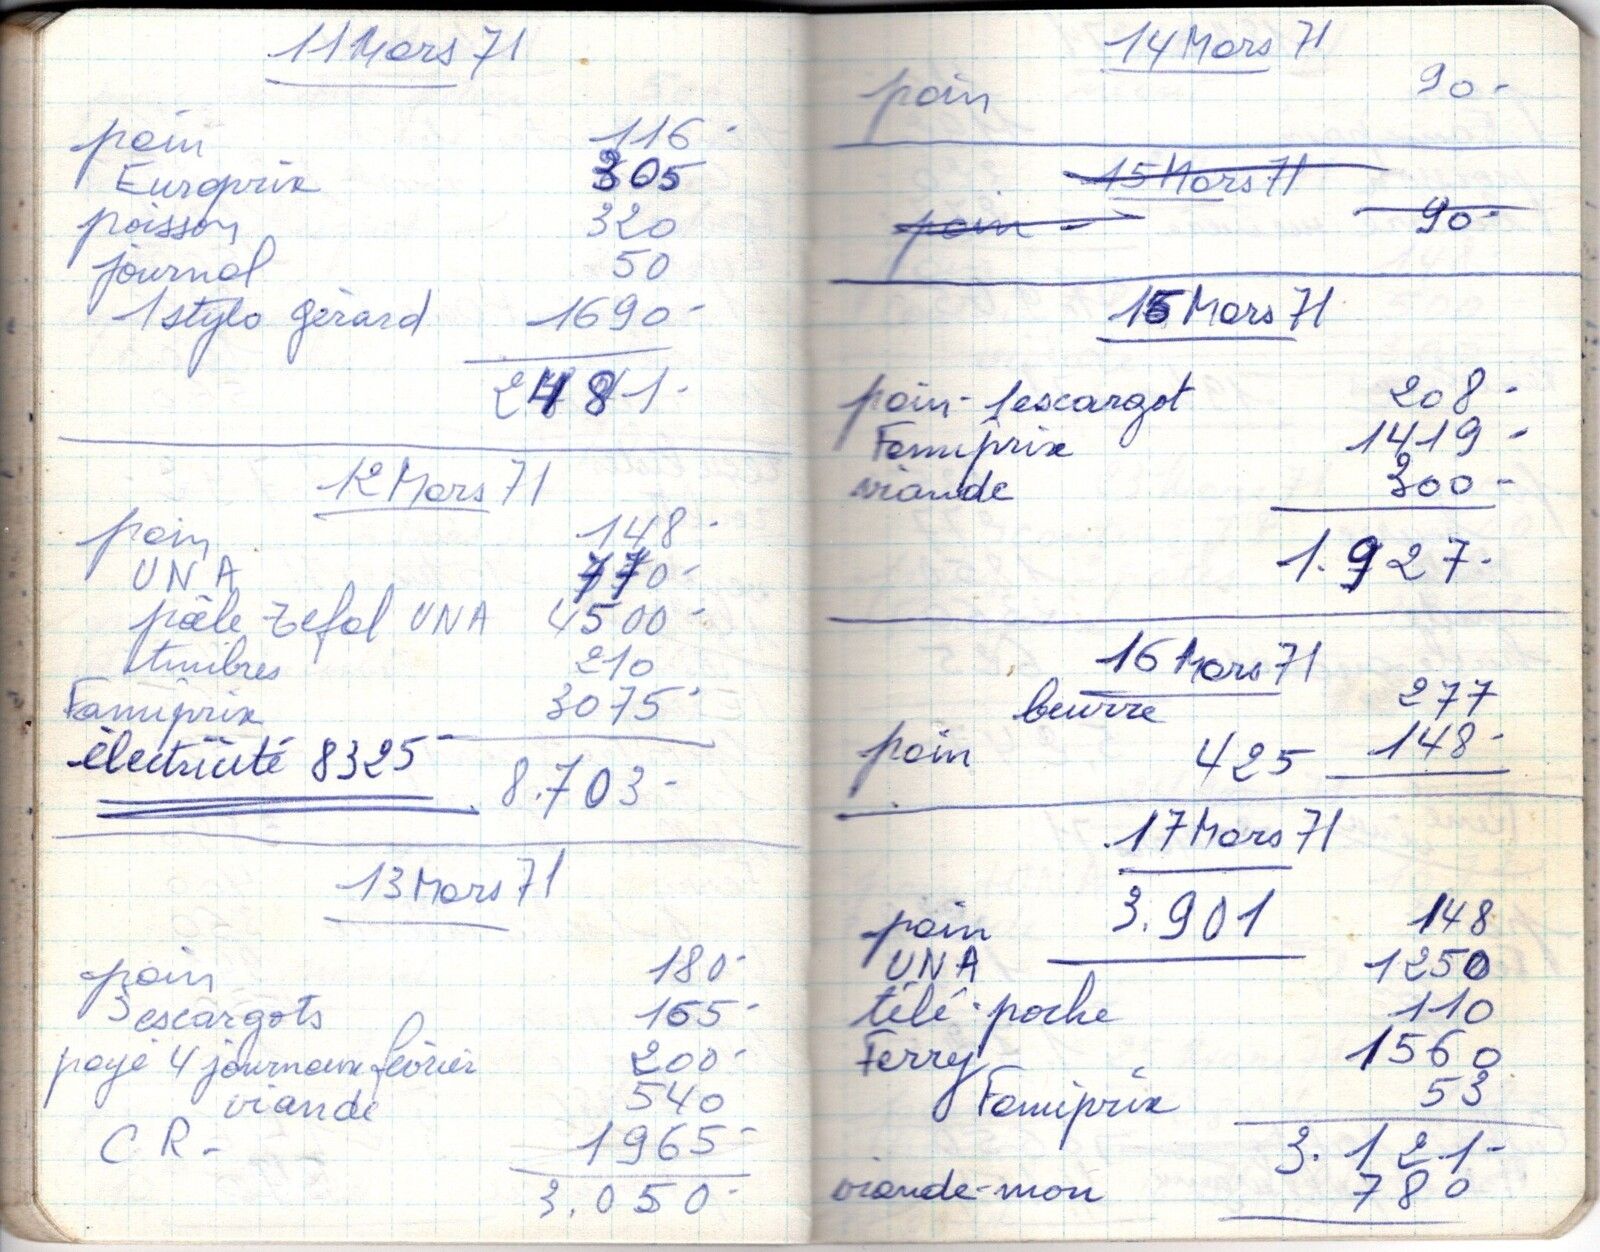 11 Mars 71
pain 116-
Europrix 305
poisson 320
journal 50
1 stylo gérard 1690-
2481-
12 Mars 71
pain 148-
UNA 770-
pôele tefal UNA 4500-
timbres 210
Famiprix 3075-
électricité 8325- 8.703-
13 Mars 71
pain 180-
3 escargots 165-
payé 4 journaux février 200-
viande 540
C R - 1965-
3.050-
14 Mars 71
pain 90-
15 Mars 71
pain - 90-
15 Mars 71
pain - 1 escargot 208-
Famiprix 1419-
viande 300-
1.927-
16 Mars 71
beurre 277
pain 425 148-
17 Mars 71
3.901
pain 148
UNA 1250
télé-poche 110
Ferry 1560
Famiprix 53
3.121-
viande-mou 780